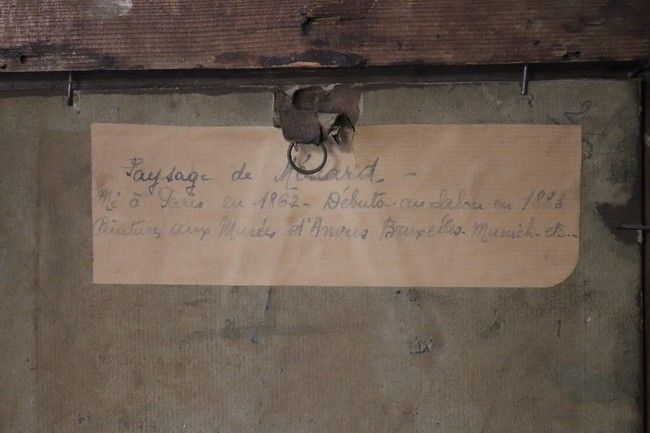 Paysage de Ménard. -
Né à Paris en 1862 - Débuta au Salon en 1883
Peintures aux Musées d'Anvers Bruxelles - Munich - etc..